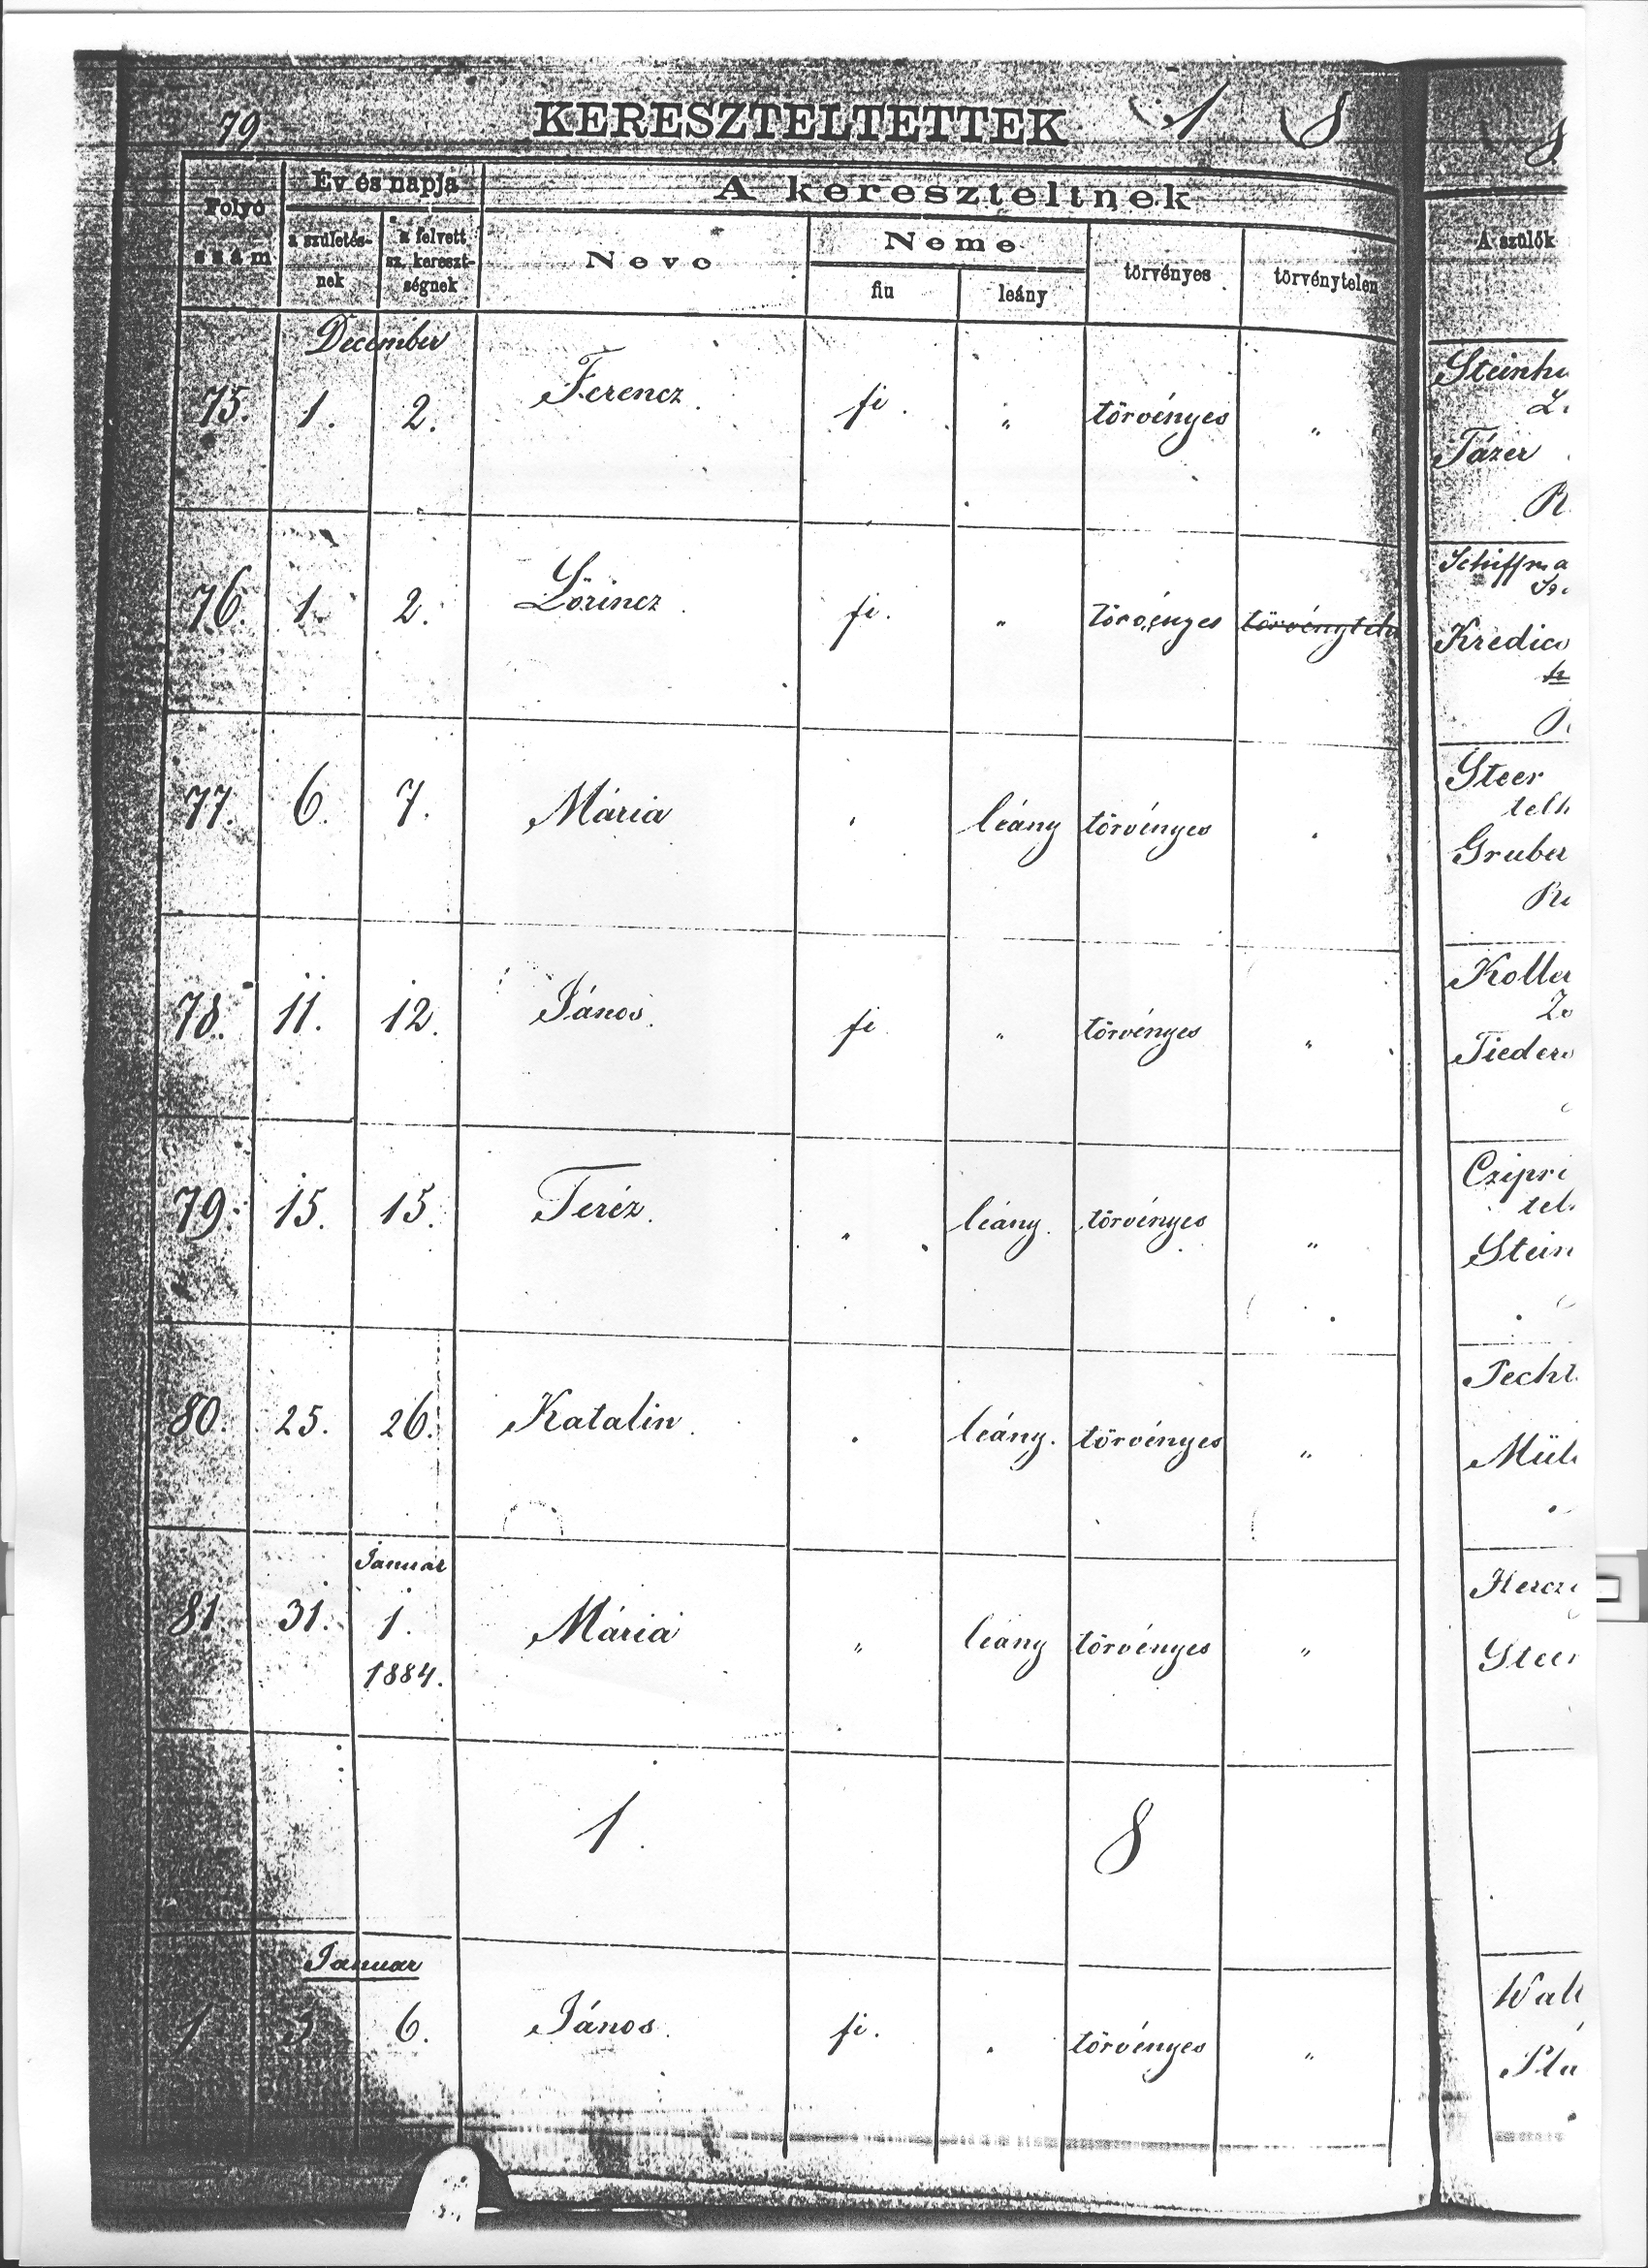 79 KERESZTELTETTEK 1 8 8
Folyó szám
Év és napja
a születés-nek
a felvett sz. kereszt-ségnek
A kereszteltnek
Neve
Neme
fiu
leány
törvényes
törvénytelen
A szülők
December
75. 1. 2. Ferencz. fi. " törvényes "
Steinh
Tázer
R
76. 1. 2. Lörincz. fi. " törvényes törvénytele
Schiffma
Kredics
77. 6. 7. Mária " leány törvényes "
Steer
telk
Gruber
78. 11. 12. János. fi " törvényes "
Koller
Tieder
79. 15. 15. Teréz. " leány. törvényes "
Czipri
tel
Stein
80. 25. 26. Katalin. " leány. törvényes "
Pecht
Mül
Januar
81 31. 1. Mária " leány törvényes "
1884.
Hercz
Steer
1. 8
Januar
1 5 6. János. fi. " törvényes "
Walt
Pla